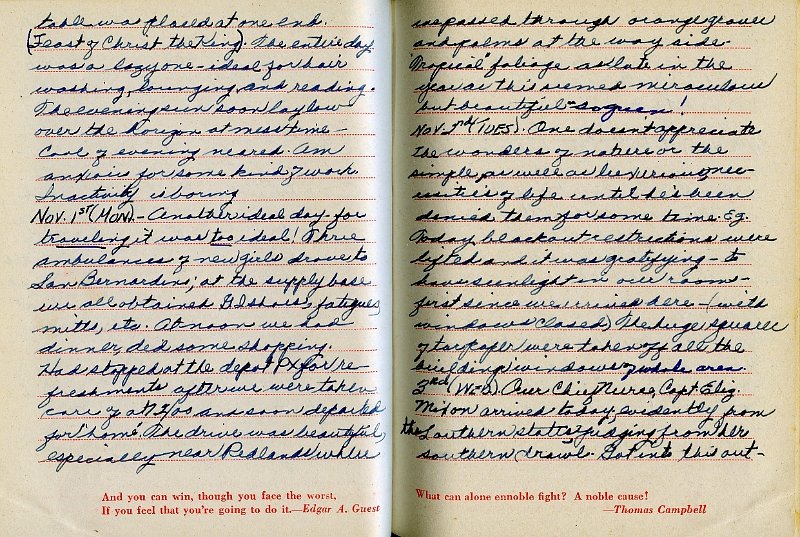 table was placed at one end.
(Feast of Christ the King). The entire day
was a lazy one - ideal for hair
washing, lounging, and reading.
The evening sun soon lay low
over the horizon at mess time -
Cool of evening neared. Am
anxious for some kind of work.
Inactivity is boring
Nov. 1st (Mon). - Another ideal day - for
traveling it was too ideal! Three
ambulances of new girls drove to
San Bernardino; at the supply base
we all obtained G.I. shoes, fatigues,
mitts, etc. At noon we had
dinner, did some shopping.
Had stopped at the depot PX for re-
freshments after we were taken
care of at 1200 and soon departed
for "home". The drive was beautiful,
especially near Redlands where
And you can win, though you face the worst,
If you feel that you're going to do it.—Edgar A. Guest
we passed through orange groves
and palms at the way side -
Tropical foliage as late in the
year as this seemed miraculous
but beautiful - so green!
Nov. 2nd (Tues). One doesn't appreciate
the wonders of nature or the
simple, as well as luxurious nec-
essities of life until he's been
denied them for some time. Eg.
Today blackout restrictions were
lifted and it was gratifying - to
have sunlight in our room -
first since we arrived here - (with
windows closed) The huge square
of tar paper were taken off all the
building windows of whole area.
3rd (Wed) Our Chief Nurse, Capt. Eliz.
Mixon arrived today, evidently from
the Southern states judging from her
southern drawl. Got into this out-
What can alone ennoble fight? A noble cause!
—Thomas Campbell